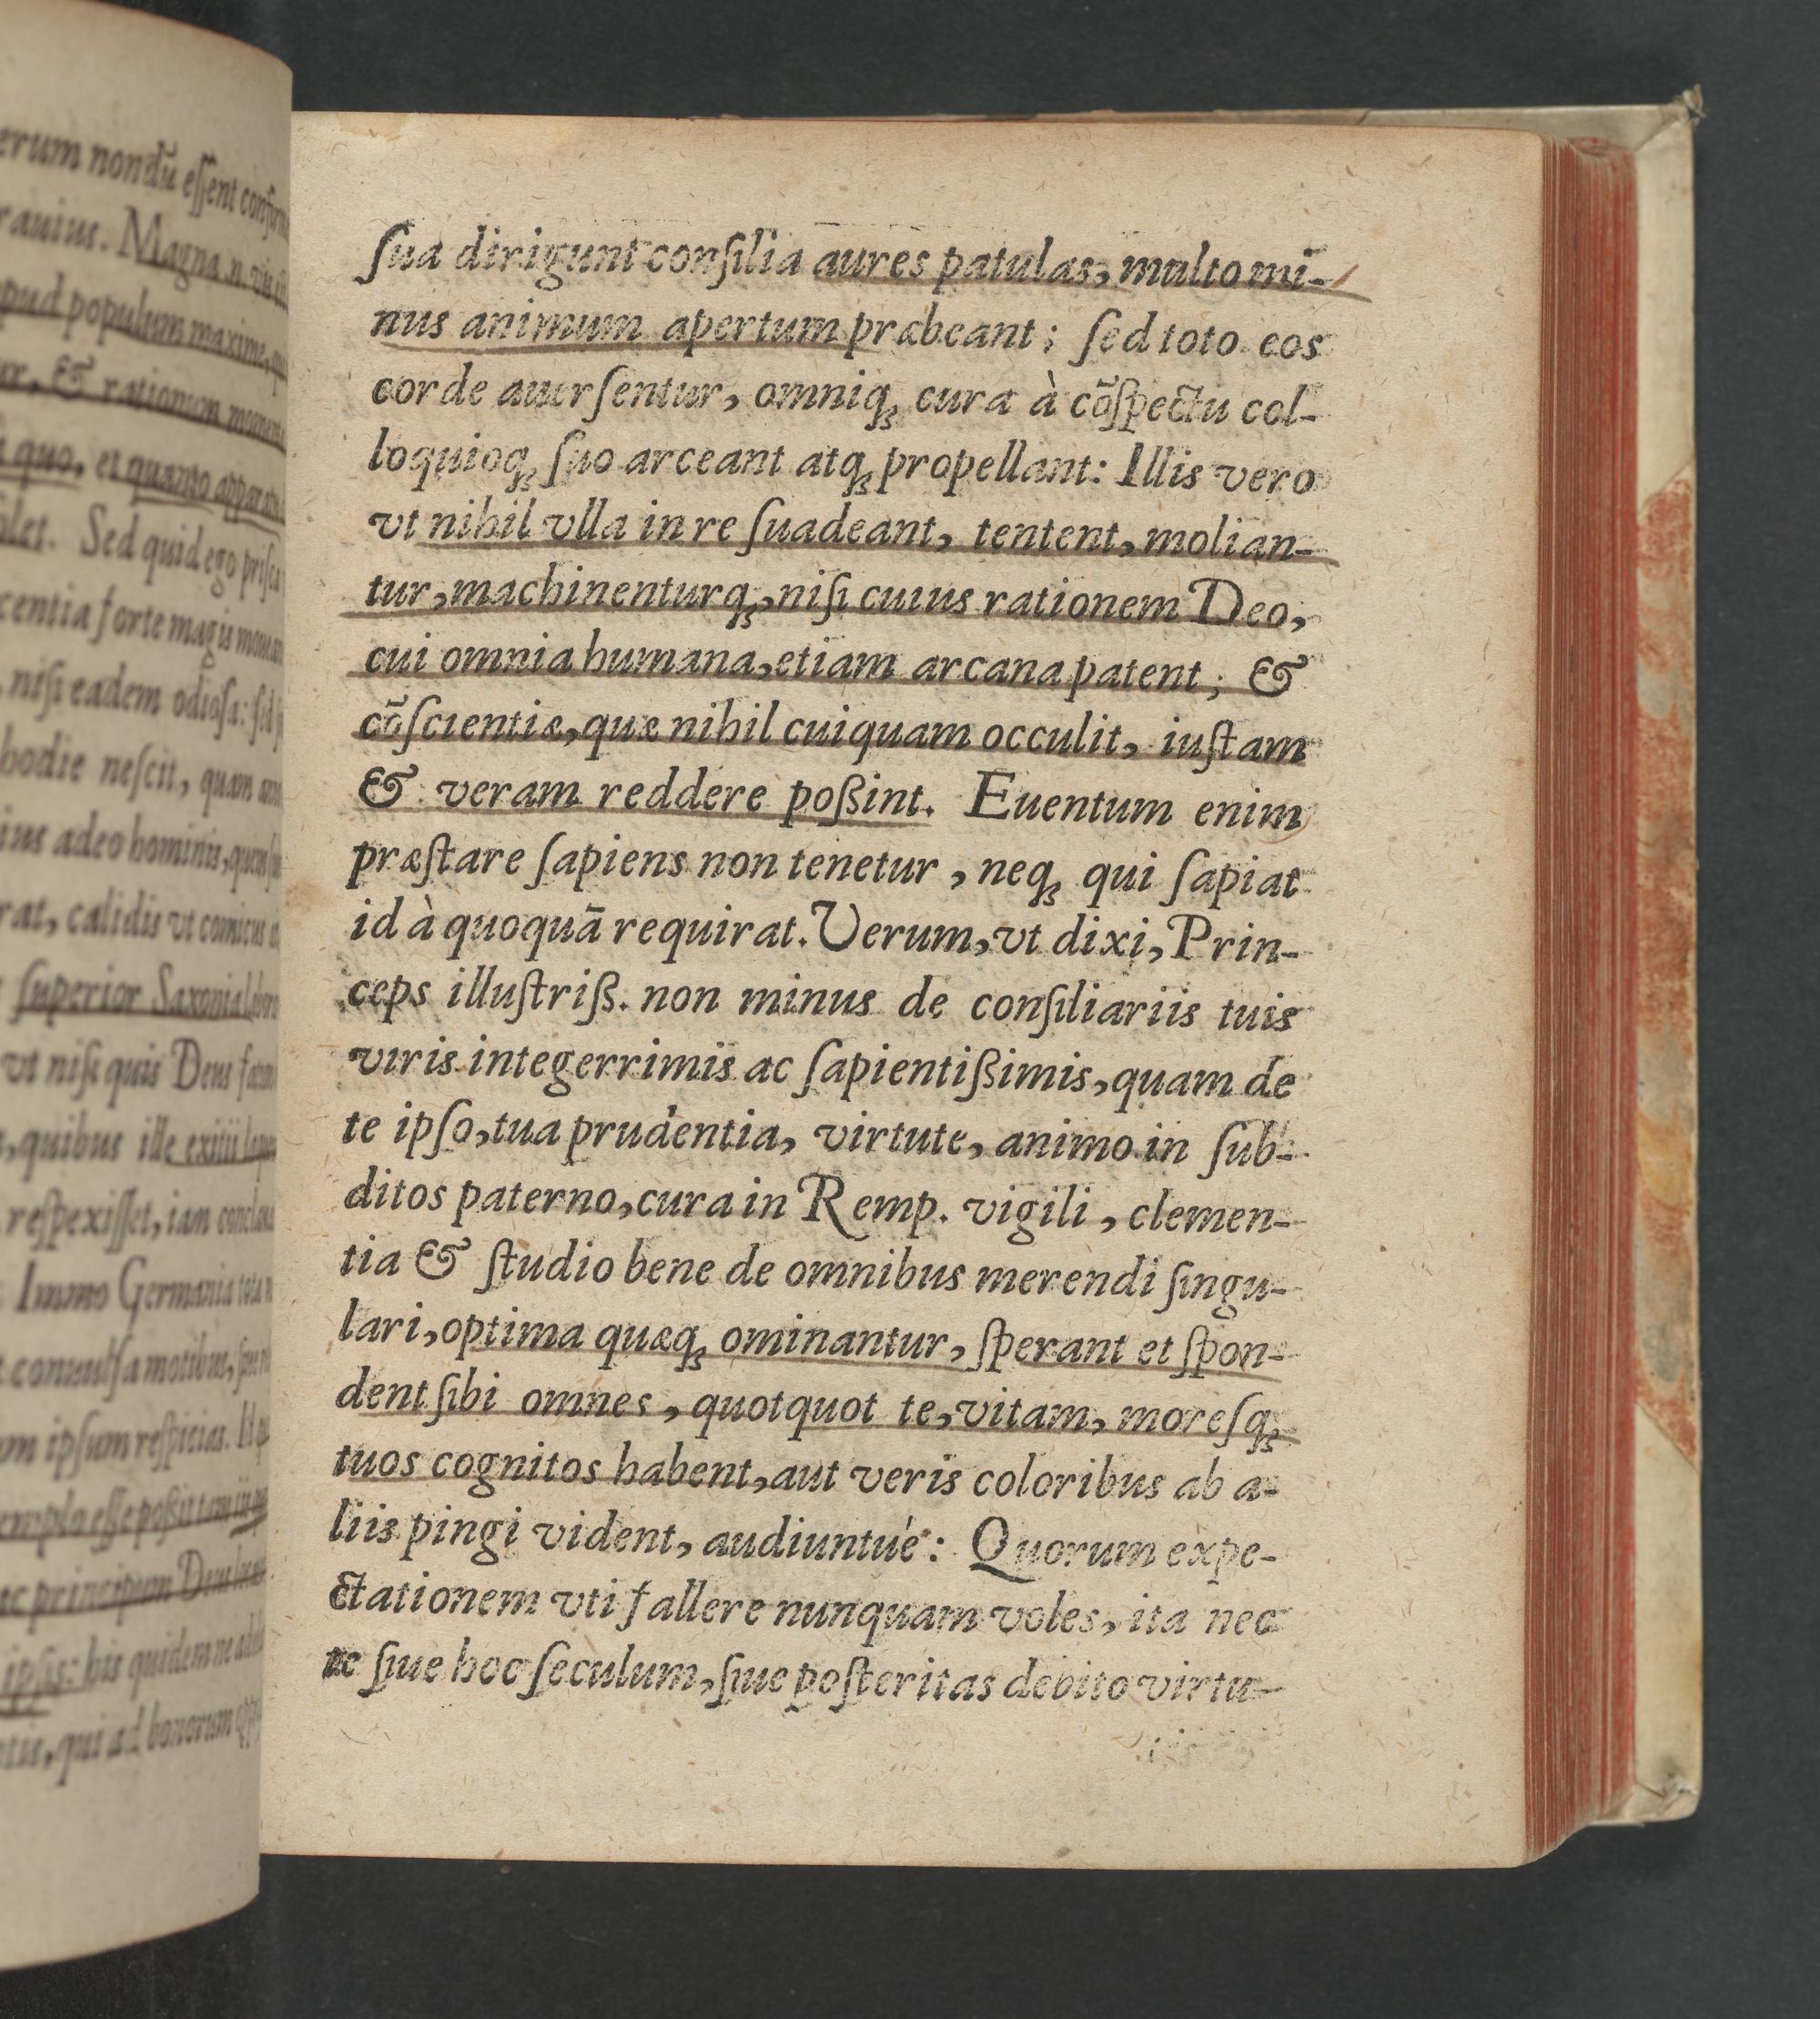 erum nondũ eſſent
rauius. Magna.n.
pud populum maxime,
ur, & rationum
quo, et quanto
olet. Sed quid ego priſca
centia forte magis
niſi eadem odioſa: ſed
hodie neſcit, quam
ius adeo hominis,
rat, calidis vt comicus
ſuperior Saxonia
vt niſi quis Deus
, quibus ille exitii
reſpexiſſet, iam
Immo Germania tota
conuulſa motibus,
um ipſum reſpicias.
eſſe poßit tam
ac principum Deus
ipſis: his quidem ne
, qui ad bonorum
ſua dirigunt conſilia aures patulas, multo mi-
nus animum apertum præbeant; ſed toto eos
corde auerſentur, omniq́; cura à cõſpectu col-
loquioq́; ſuo arceant atq́; propellant: Illis vero
vt nihil vlla in re ſuadeant, tentent, molian-
tur, machinenturq́;, niſi cuius rationem Deo,
cui omnia humana, etiam arcana patent; &
cõſcientiæ, quæ nihil cuiquam occulit, iuſtam
& veram reddere poßint. Euentum enim
præſtare ſapiens non tenetur, neq́; qui ſapiat
id à quoquā requirat. Verum, vt dixi, Prin-
ceps illuſtriß. non minus de conſiliariis tuis
viris integerrimis ac ſapientißimis, quam de
te ipſo, tua prudentia, virtute, animo in ſub-
ditos paterno, cura in Remp. vigili, clemen-
tia & ſtudio bene de omnibus merendi ſingu-
lari, optima quæq́; ominantur, ſperant et ſpon-
dent ſibi omnes, quotquot te, vitam, moreſq́;
tuos cognitos habent, aut veris coloribus ab a-
liis pingi vident, audiuntué: Quorum expe-
ctationem vti fallere nunquam voles, ita nec
te ſiue hoc ſeculum, ſiue poſteritas debito virtu-